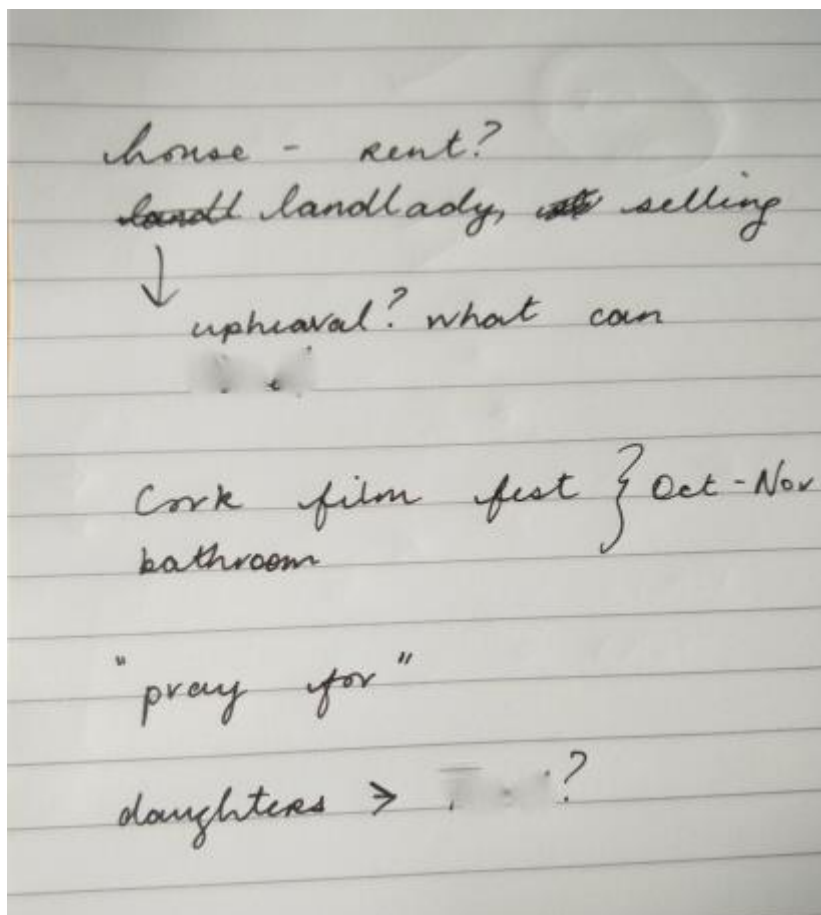 house - rent?
landlady, selling
↓
upheaval? what can
Cork film fest } Oct - Nov
bathroom
"pray for"
daughters > ?